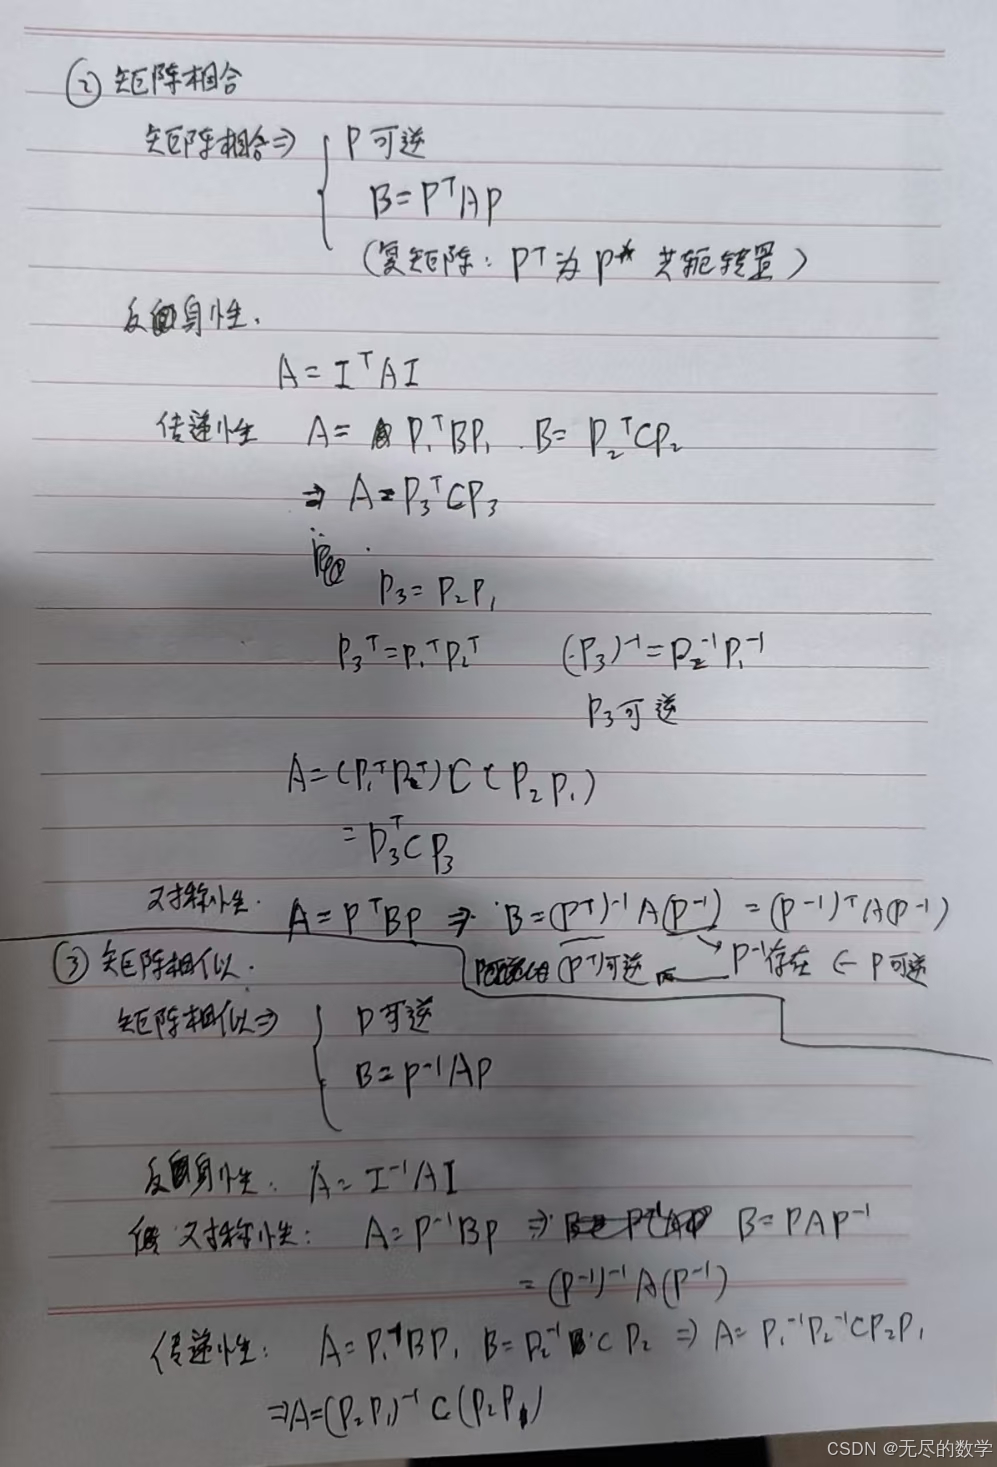 ② 矩阵相合
矩阵相合⇒ { P 可逆
B=PᵀAP
(复矩阵: Pᵀ为 P* 共轭转置)
反身性.
A=IᵀAI
传递性 A= P₁ᵀBP₁ . B= P₂ᵀCP₂
⇒ A=P₃ᵀCP₃
P₃=P₂P₁
P₃ᵀ=P₁ᵀP₂ᵀ (P₃)⁻¹=P₂⁻¹P₁⁻¹
P₃可逆
A=(P₁ᵀP₂ᵀ)C(P₂P₁)
=P₃ᵀCP₃
对称性. A=PᵀBP ⇒ B=(Pᵀ)⁻¹A(P⁻¹) =(P⁻¹)ᵀA(P⁻¹)
(Pᵀ)可逆 P⁻¹存在 ← P可逆
③ 矩阵相似.
矩阵相似⇒ { P可逆
B=P⁻¹AP
反身性. A=I⁻¹AI
对称性: A=P⁻¹BP ⇒ B=PAP⁻¹
=(P⁻¹)⁻¹A(P⁻¹)
传递性: A=P₁⁻¹BP₁ B=P₂⁻¹CP₂ ⇒ A=P₁⁻¹P₂⁻¹CP₂P₁
⇒A=(P₂P₁)⁻¹C(P₂P₁)
CSDN @无尽的数学